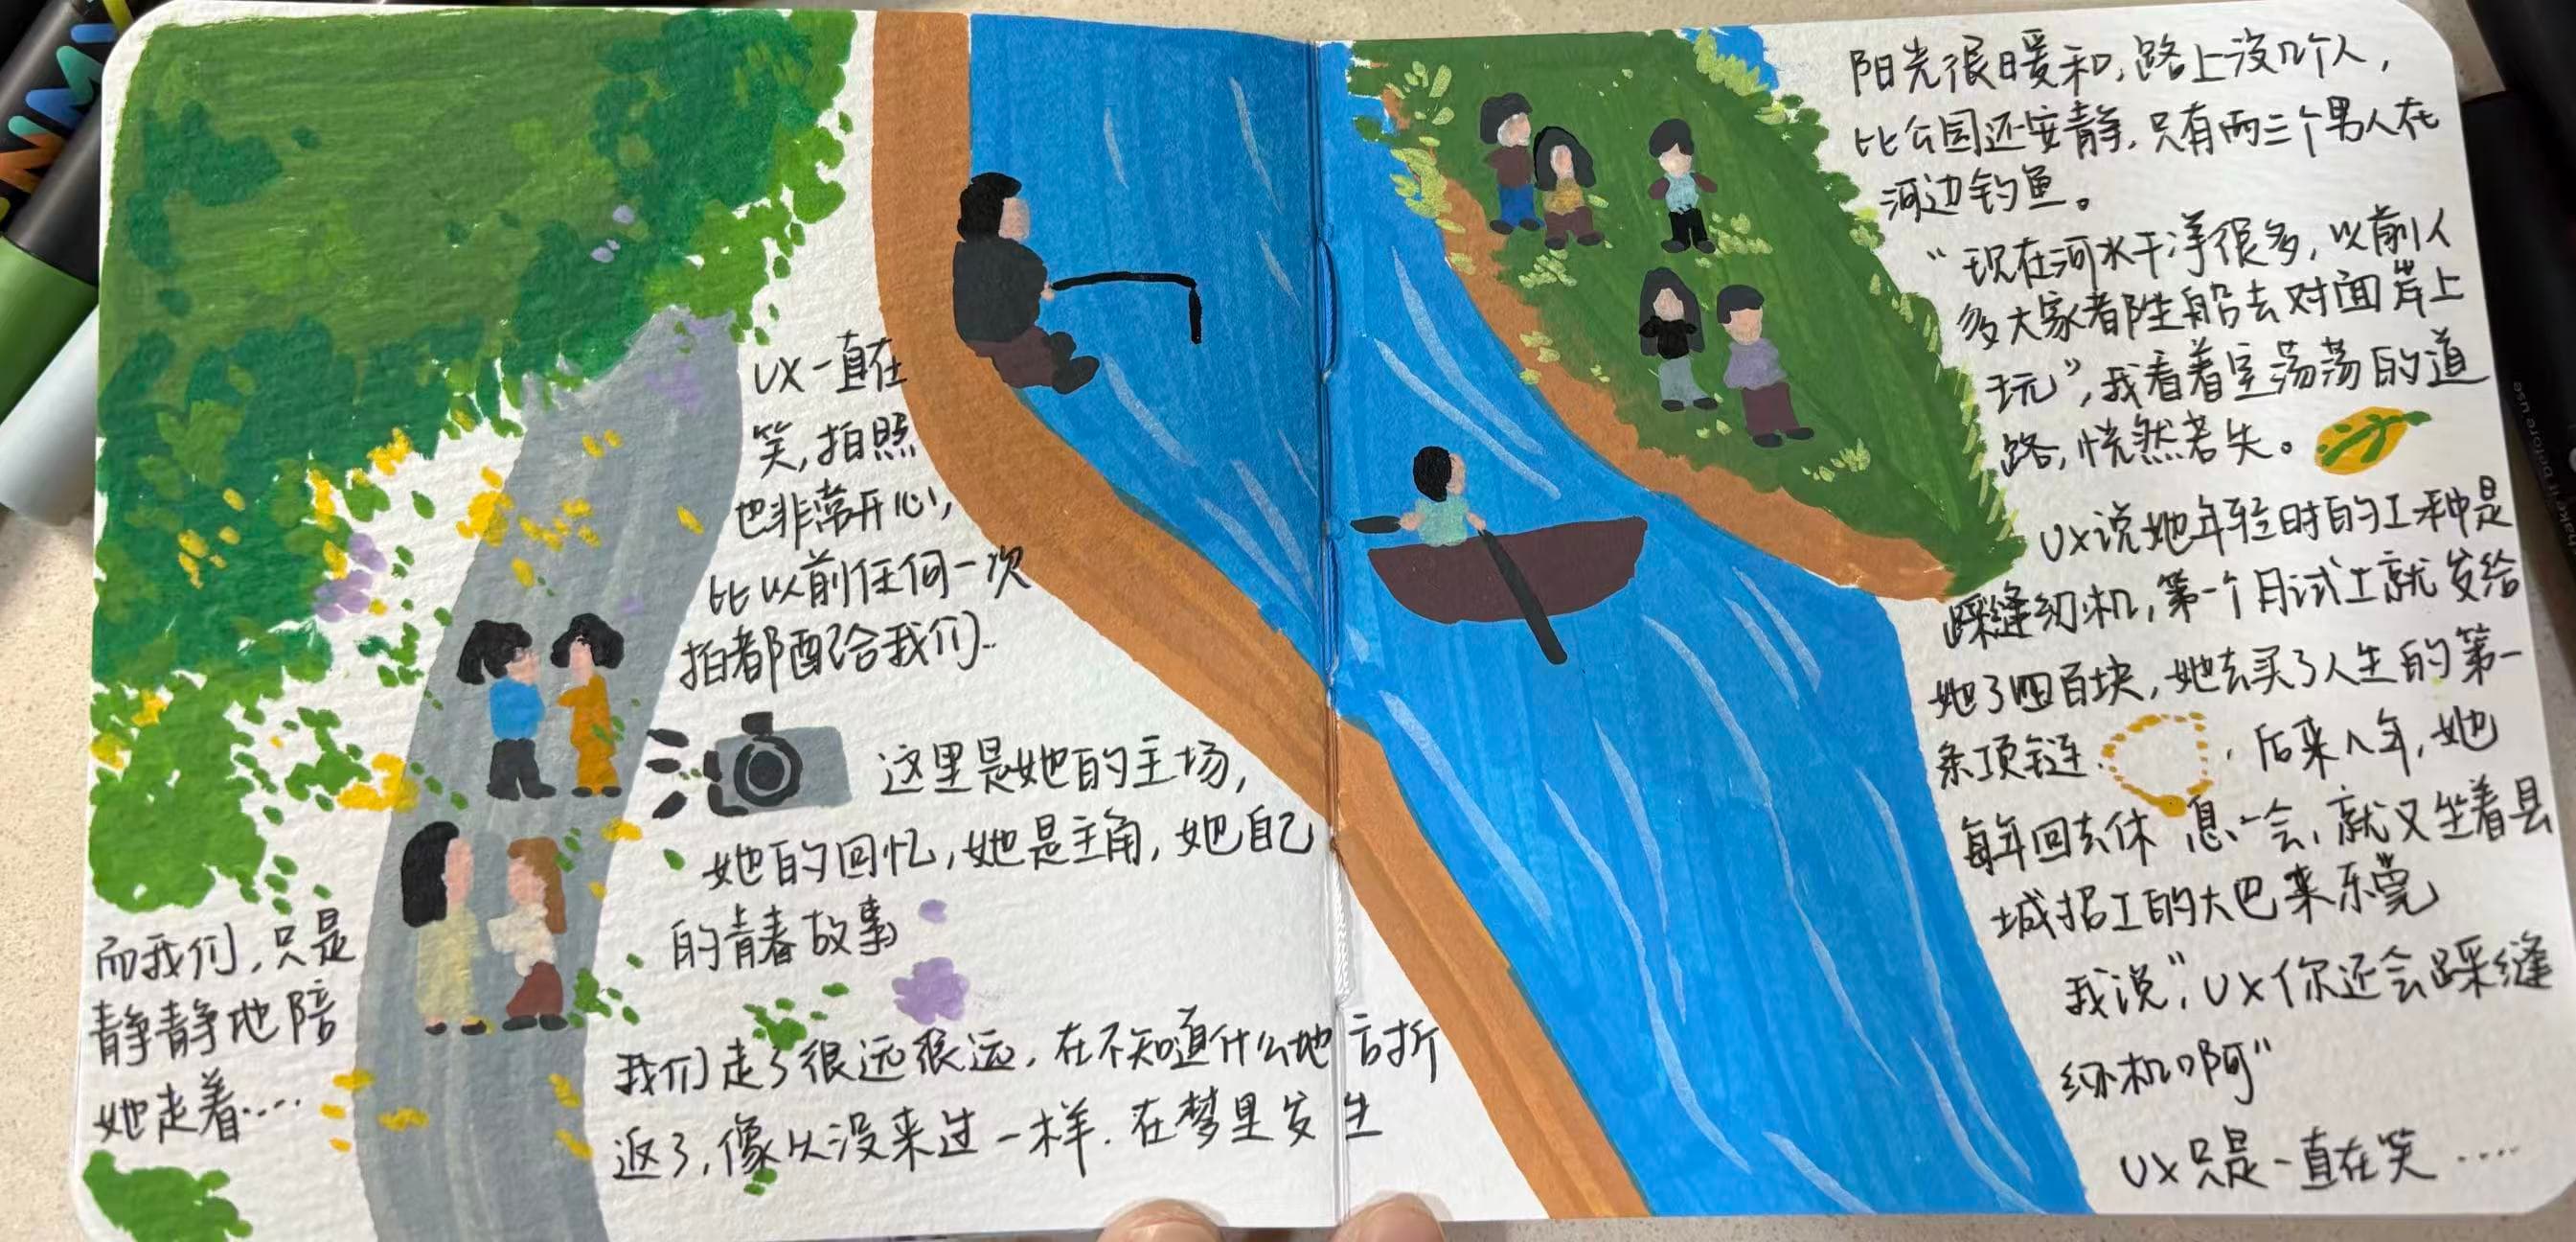 UX一直在
笑,拍照
也非常开心,
比以前任何一次
拍都配合我们..
这里是她的主场,
她的回忆,她是主角,她自己
的青春故事
而我们,只是
静静地陪
她走着....
我们走了很远很远,在不知道什么地方折
返了,像从没来过一样.在梦里发生
阳光很暖和,路上没几个人,
比公园还安静.只有两三个男人在
河边钓鱼。
“现在河水干净很多,以前人
多大家都坐船去对面岸上
玩”,我看着空荡荡的道
路,恍然若失。
UX说她年轻时的工种是
踩缝纫机,第一个月试工就发给
她了四百块,她去买了人生的第一
条项链.后来八年,她
每年回去休息一会,就又坐着县
城招工的大巴来东莞
我说“,UX你还会踩缝
纫机啊”
UX只是一直在笑.....
make it before use